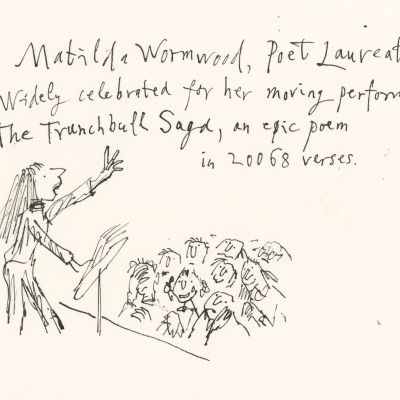 Matilda Wormwood, Poet Laureat
Widely celebrated for her moving perform
the Trunchbull Saga, an epic poem
in 20068 verses.